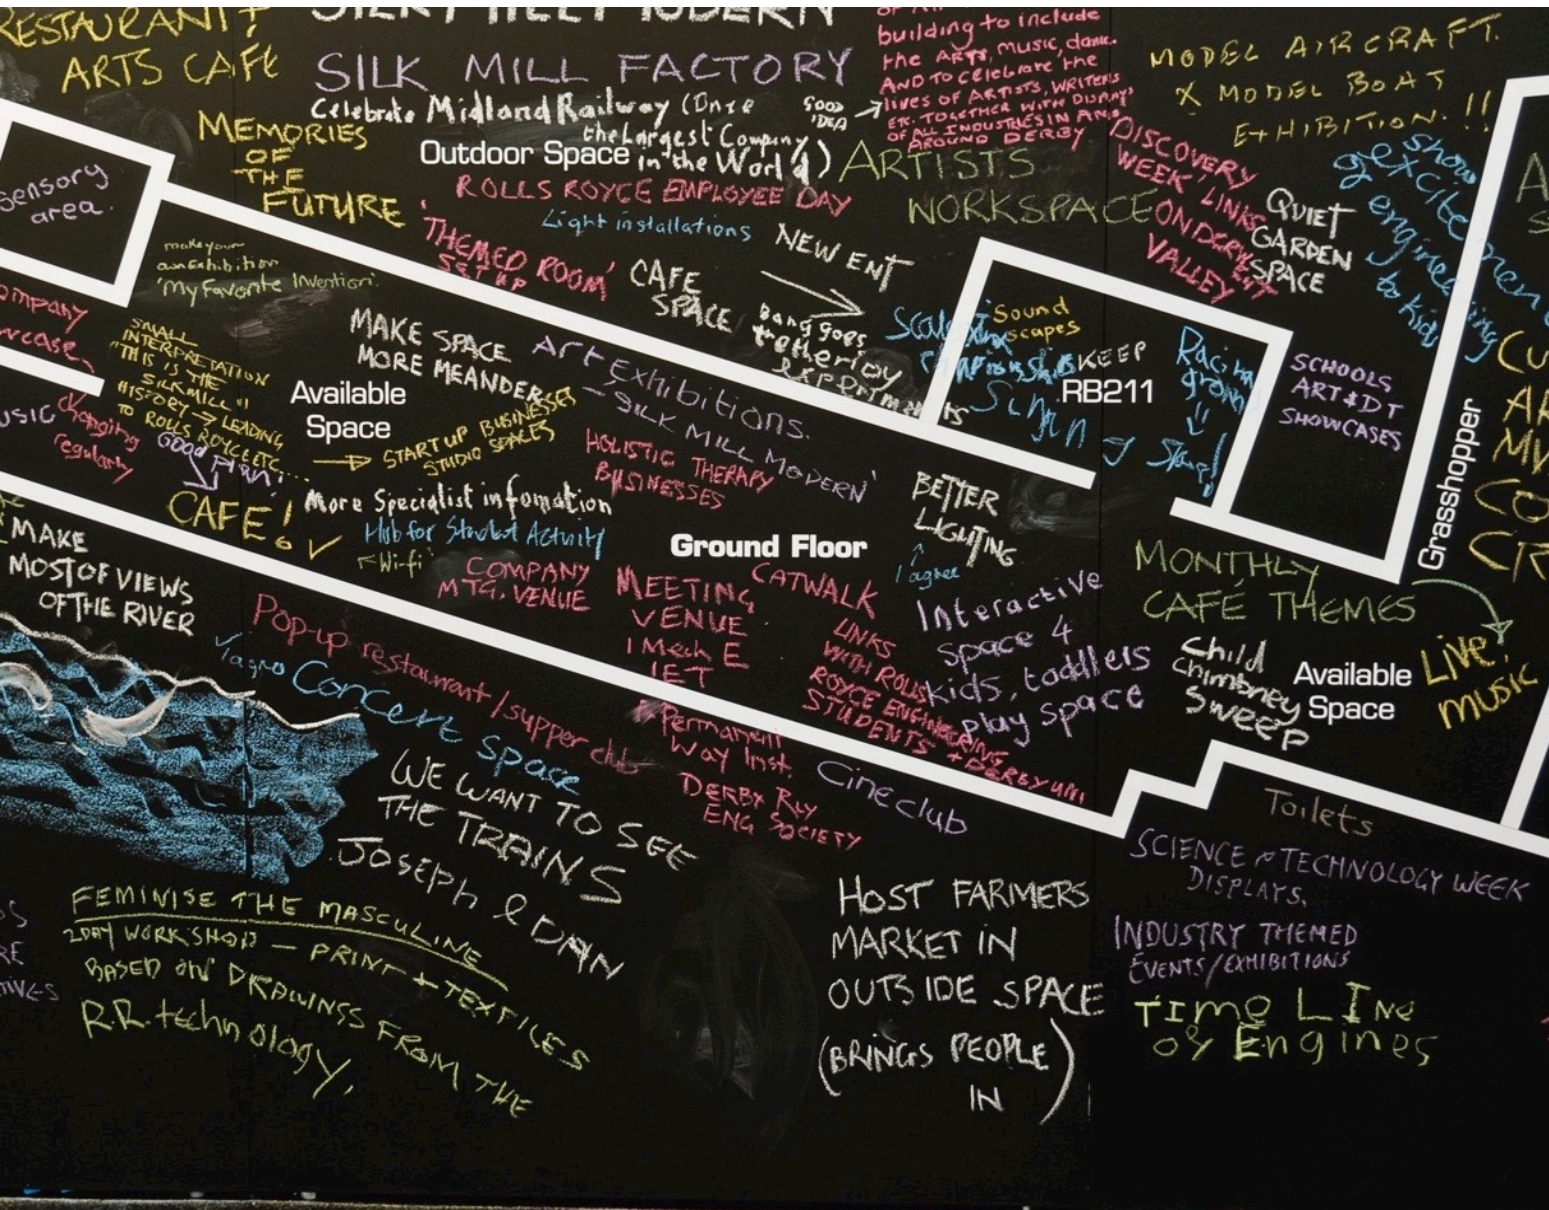 RESTAURANT +
ARTS CAFE
SILKY MILLY MODERN
SILK MILL FACTORY
Celebrate Midland Railway (Once
the Largest Company
in the World)
GOOD
IDEA
building to include
the ARTS, music, dance.
AND TO CELEBRATE the
lives OF ARTISTS, WRITERS
ETC. TOGETHER WITH DISPLAY
OF ALL INDUSTRIES IN AND
AROUND DERBY
MODEL AIRCRAFT.
X MODEL BOAT
EXHIBITION. !!
MEMORIES
OF
THE
FUTURE
Outdoor Space
ROLLS ROYCE EMPLOYEE DAY
Light installations
ARTISTS
WORKSPACE
DISCOVERY
WEEK LINKS
ON DERWENT
VALLEY
QUIET
GARDEN
SPACE
show
excitement
engineering
to kids
Sensory
area.
make your
own Exhibition
'My Favorite Invention'.
'THEMED ROOM'
SET UP
CAFE
SPACE
NEW ENT
Bang goes
the theory
experiments
Sound
scapes
KEEP
RB211
Singing
SCHOOLS
ART & DT
SHOWCASES
Grasshopper
company
showcase
MUSIC
changing
regularly
SMALL
INTERPRETATION
"THIS IS THE
SILKMILL"
HISTORY → LEADING
TO ROLLS ROYCE ETC...
GOOD Plan!
MAKE SPACE
MORE MEANDER
Available
Space
START UP BUSINESSES
STUDIO SPACES
Art exhibitions.
- 'SILK MILL MODERN'
HOLISTIC THERAPY
BUSINESSES
CAFE! ✓
More Specialist infomation
Hub for Student Activity
Wi-fi
COMPANY
MTG. VENUE
Ground Floor
BETTER
LIGHTING
↑
I agree
MEETING
VENUE
I Mech E
IET
CATWALK
LINKS
WITH ROLLS
ROYCE ENGINEERING
STUDENTS + DERBY UNI
Interactive
space 4
kids, toddlers
play space
MONTHLY
CAFÉ THEMES
Child
chimbney
sweep
Available
Space
Live
music
MAKE
MOST OF VIEWS
OF THE RIVER
Pop-up restaurant / supper club
Concert space
Permanent
Way Inst.
DERBY RLY
ENG SOCIETY
Cine club
WE WANT TO SEE
THE TRAINS
JOSEPH & DAN
Toilets
SCIENCE & TECHNOLOGY WEEK
DISPLAYS.
INDUSTRY THEMED
EVENTS/EXHIBITIONS
TIME LINE
of Engines
HOST FARMERS
MARKET IN
OUTSIDE SPACE
(BRINGS PEOPLE
IN)
FEMINISE THE MASCULINE
2 DAY WORKSHOP - PRINT + TEXTILES
BASED ON DRAWINGS FROM THE
R.R. technology.